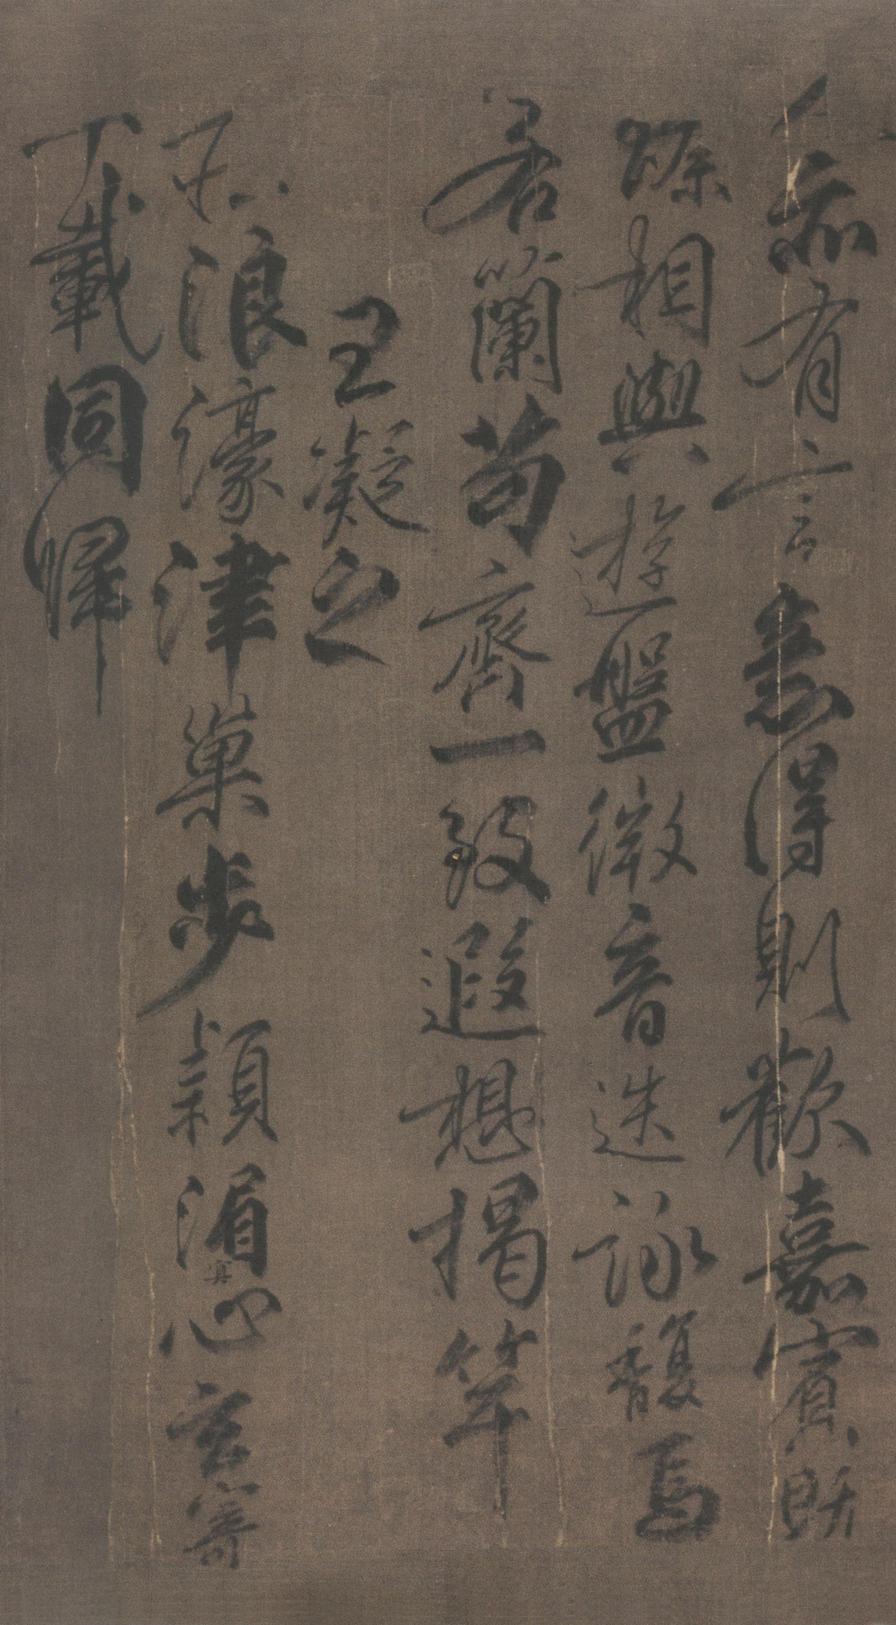 人亦有言意得則歡嘉賓既
臻相與遊盤微音迭詠馥焉
若蘭苟齊一致遐想揭竿
王凝之
莊浪濠津巢步潁湄冥心玄寄
千載同歸